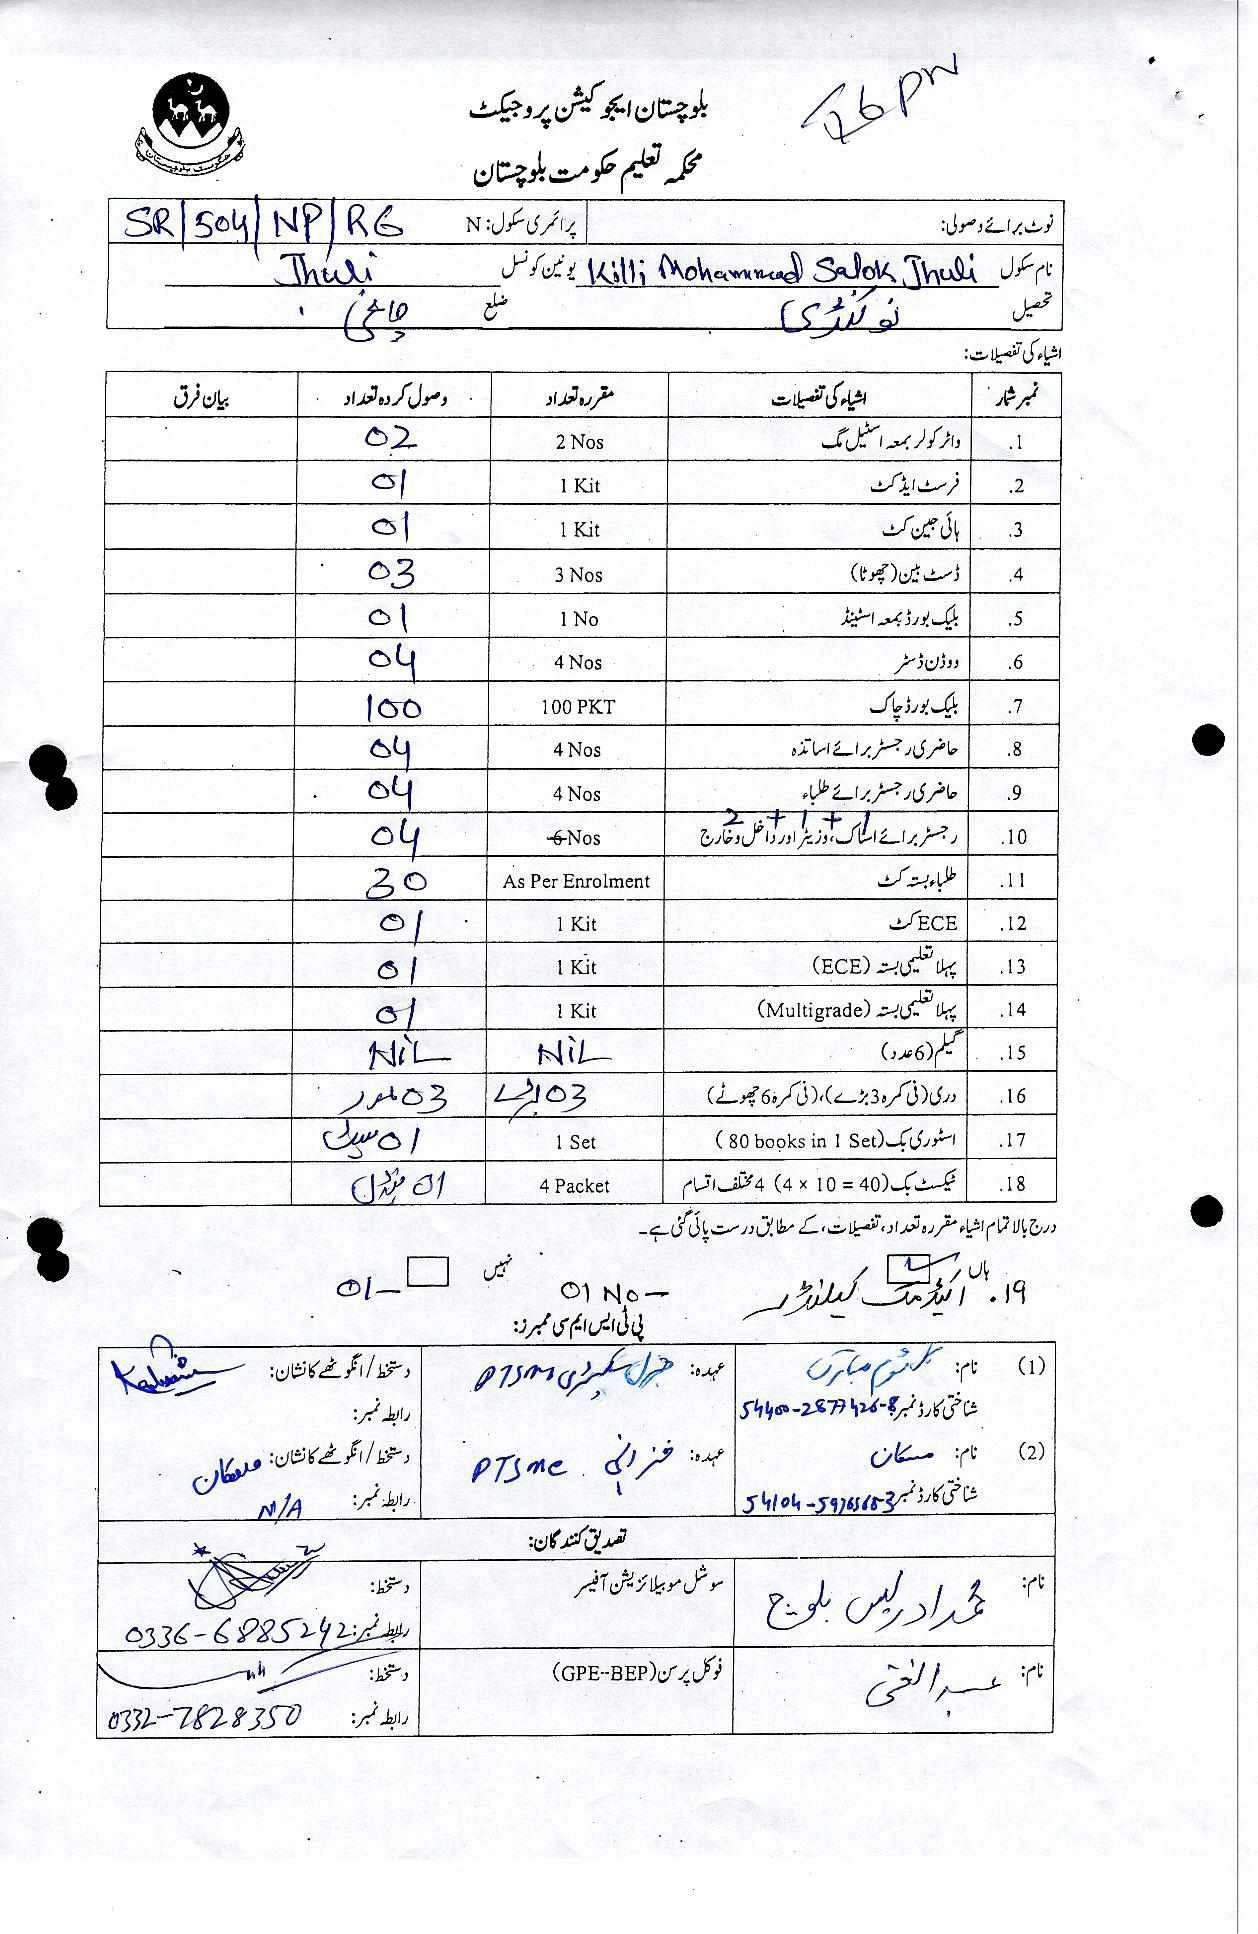 بلوچستان ایجوکیشن پروجیکٹ
محکمہ تعلیم حکومت بلوچستان
نوٹ برائے وصولی: پرائمری سکول: N SR/504/NP/RG
نام سکول Killi Mohammad Salok Jhuli یونین کونسل Jhuli
تحصیل نوکنڈی ضلع چاغی
اشیاء کی تفصیلات:
نمبر شمار اشیاء کی تفصیلات مقررہ تعداد وصول کردہ تعداد بیان فرق
.1 واٹر کولر بمعہ اسٹیل مگ 2 Nos 02
.2 فرسٹ ایڈ کٹ 1 Kit 01
.3 ہائی جین کٹ 1 Kit 01
.4 ڈسٹ بین (چھوٹا) 3 Nos 03
.5 بلیک بورڈ بمعہ اسٹینڈ 1 No 01
.6 ووڈن ڈسٹر 4 Nos 04
.7 بلیک بورڈ چاک 100 PKT 100
.8 حاضری رجسٹر برائے اساتذہ 4 Nos 04
.9 حاضری رجسٹر برائے طلباء 4 Nos 04
2 + 1 + 1
.10 رجسٹر برائے اسٹاک، وزیٹر اور داخل وخارج 6 Nos 04
.11 طلباء بستہ کٹ As Per Enrolment 30
.12 ECE کٹ 1 Kit 01
.13 پہلا تعلیمی بستہ (ECE) 1 Kit 01
.14 پہلا تعلیمی بستہ (Multigrade) 1 Kit 01
.15 گیلم (6 عدد) NIL NIL
.16 دری (فی کمرہ 3 بڑے)، (فی کمرہ 6 چھوٹے) 03 بڑے 03
.17 اسٹوری بک (80 books in 1 Set) 1 Set 01 سیٹ
.18 ٹیکسٹ بک (4 x 10 = 40) 4 مختلف اقسام 4 Packet 01 بنڈل
درج بالا تمام اشیاء مقررہ تعداد، تفصیلات، کے مطابق درست پائی گئی ہے۔
ہاں نہیں
۱۹. اکیڈمک کیلنڈر 01 No - 01
پی ٹی ایس ایم سی ممبرز:
(1) نام: کلثوم مبارک عہدہ: جنرل سیکریٹری PTSMC دستخط / انگوٹھے کا نشان:
شناختی کارڈ نمبر 54400-2877426-8 رابطہ نمبر:
(2) نام: مسکان عہدہ: خزانچی PTSMC دستخط / انگوٹھے کا نشان: مسکان
شناختی کارڈ نمبر رابطہ نمبر: N/A
تصدیق کنندگان:
نام: محمد ادریس بلوچ سوشل موبیلائزیشن آفیسر دستخط:
رابطہ نمبر: 0336-6885242
نام: عبدالغنی فوکل پرسن (GPE-BEP) دستخط:
رابطہ نمبر: 0332-7828350